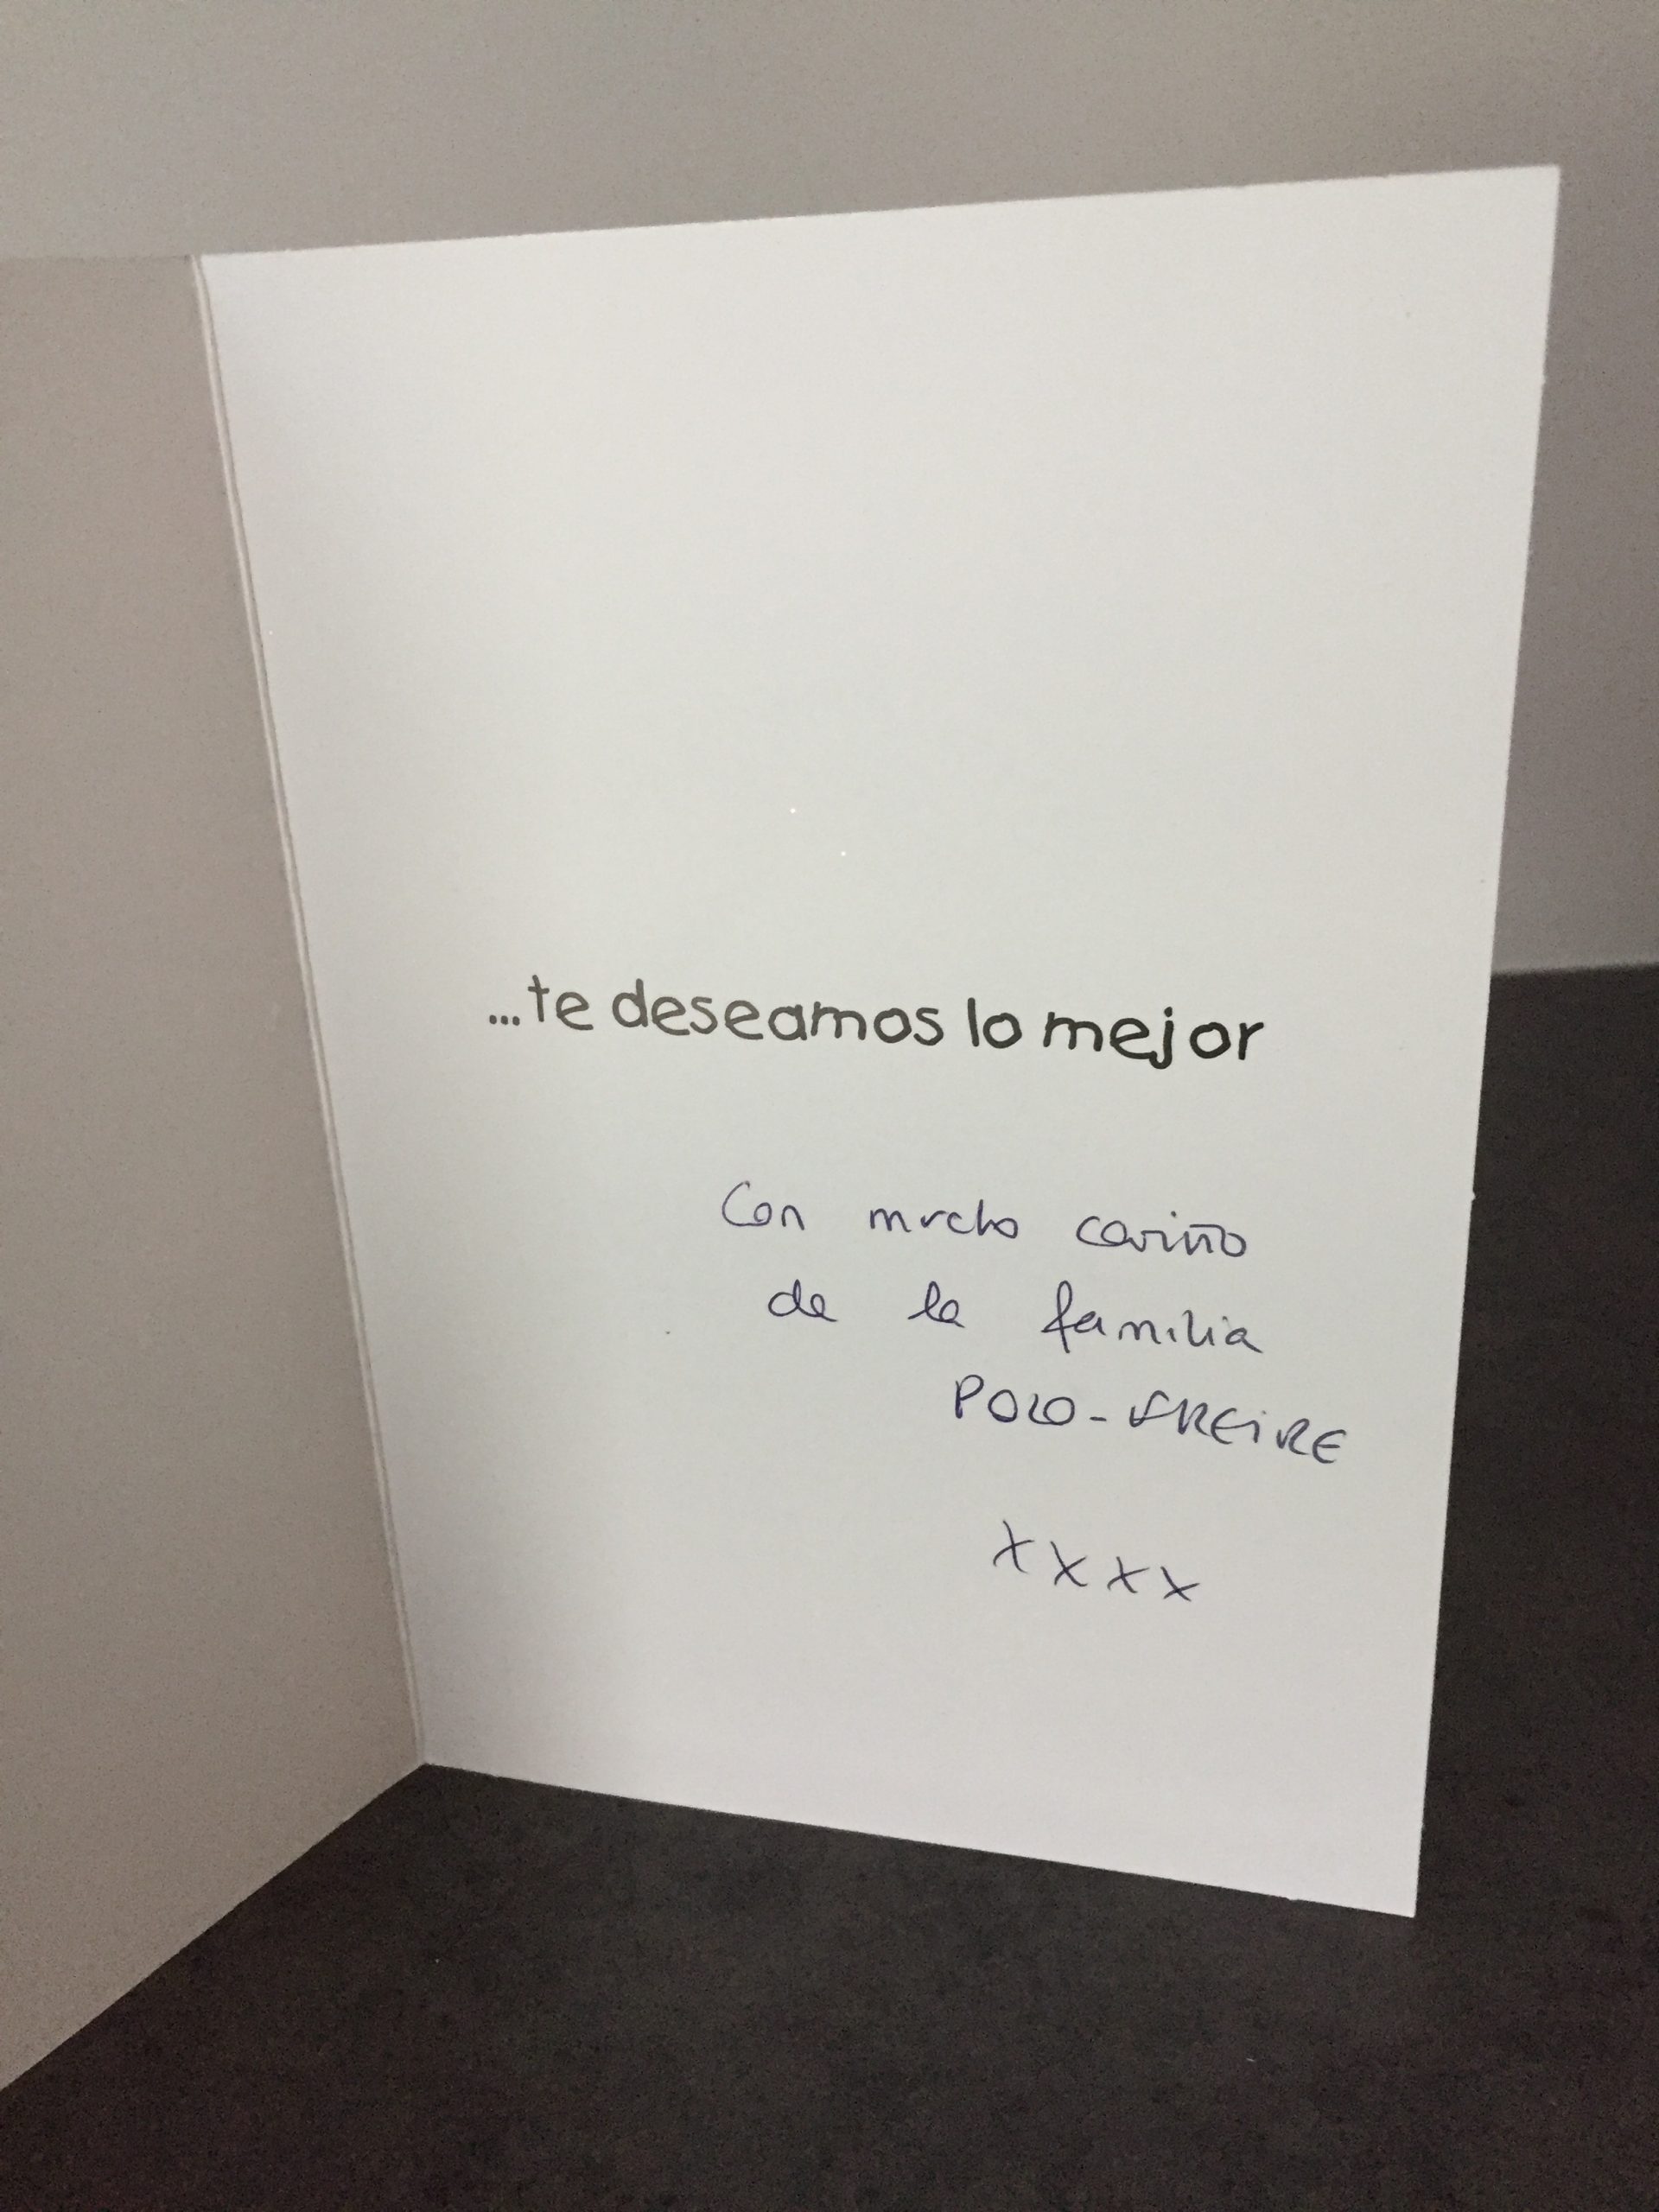 ...te deseamos lo mejor
Con mucho cariño
de la familia
POLO-FREIRE
xxxx